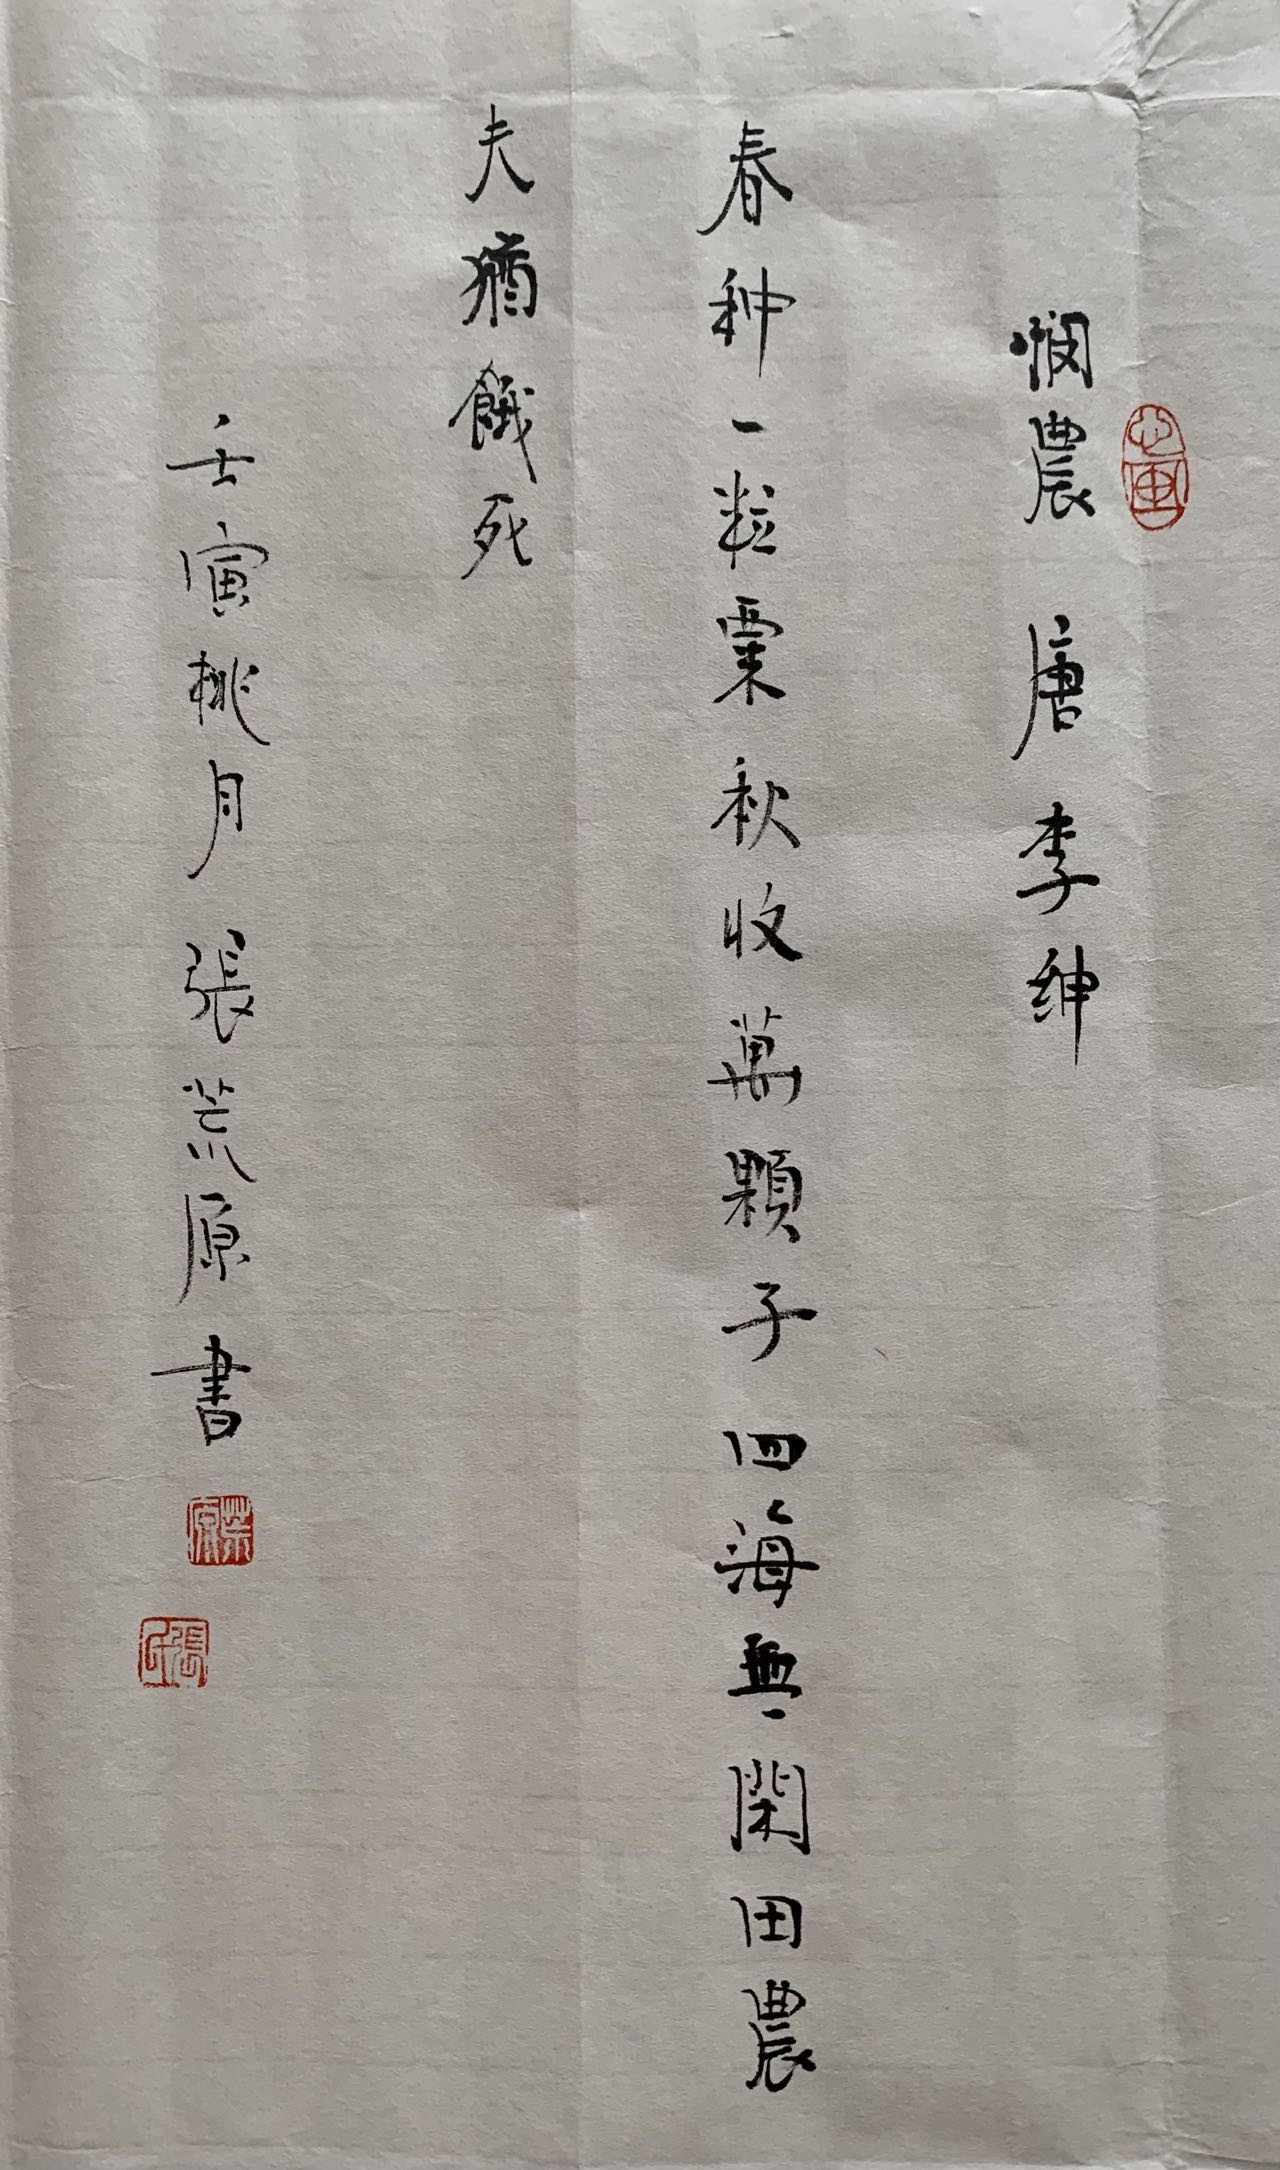 憫農 唐 李紳
春种一粒粟秋收萬顆子四海無閑田農
夫猶餓死
壬寅桃月 張荒原書
荒原
張